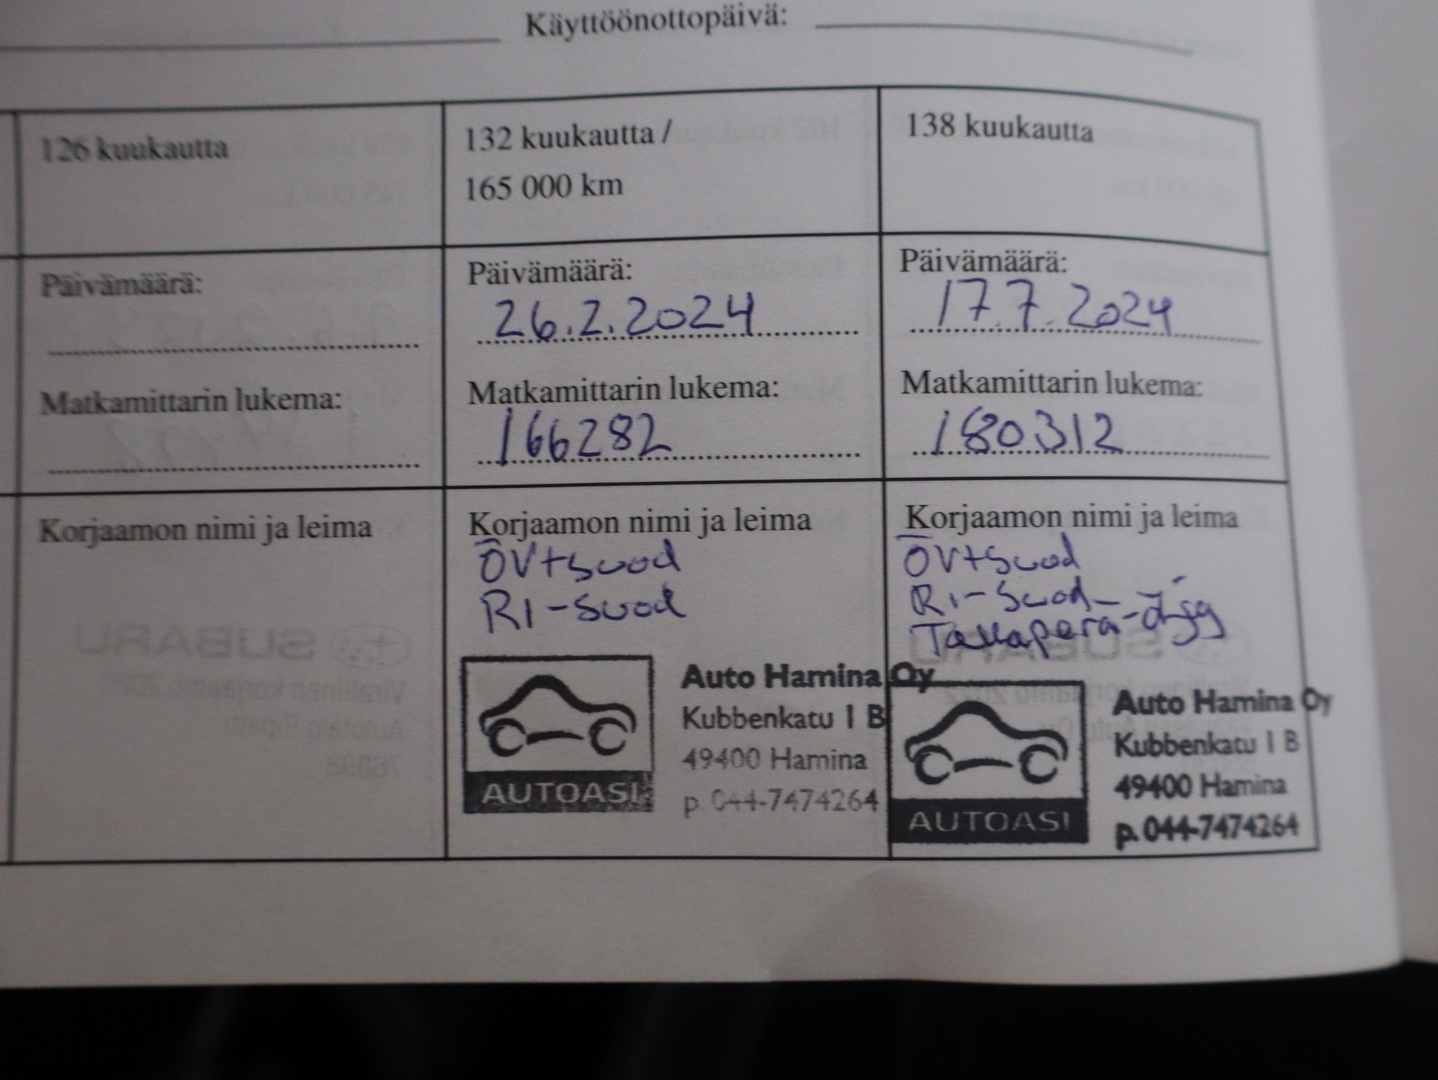 Käyttöönottopäivä:
126 kuukautta
132 kuukautta /
165 000 km
138 kuukautta
Päivämäärä:
Päivämäärä:
26.2.2024
Päivämäärä:
17.7.2024
Matkamittarin lukema:
Matkamittarin lukema:
166282
Matkamittarin lukema:
180312
Korjaamon nimi ja leima
Korjaamon nimi ja leima
ÖV+suod
RI-suod
Auto Hamina Oy
Kubbenkatu 1 B
49400 Hamina
p. 044-7474264
AUTOASI
Korjaamon nimi ja leima
ÖV+suod
RI-suod
Takapera-öljy
Auto Hamina Oy
Kubbenkatu 1 B
49400 Hamina
p. 044-7474264
AUTOASI
SUBARU